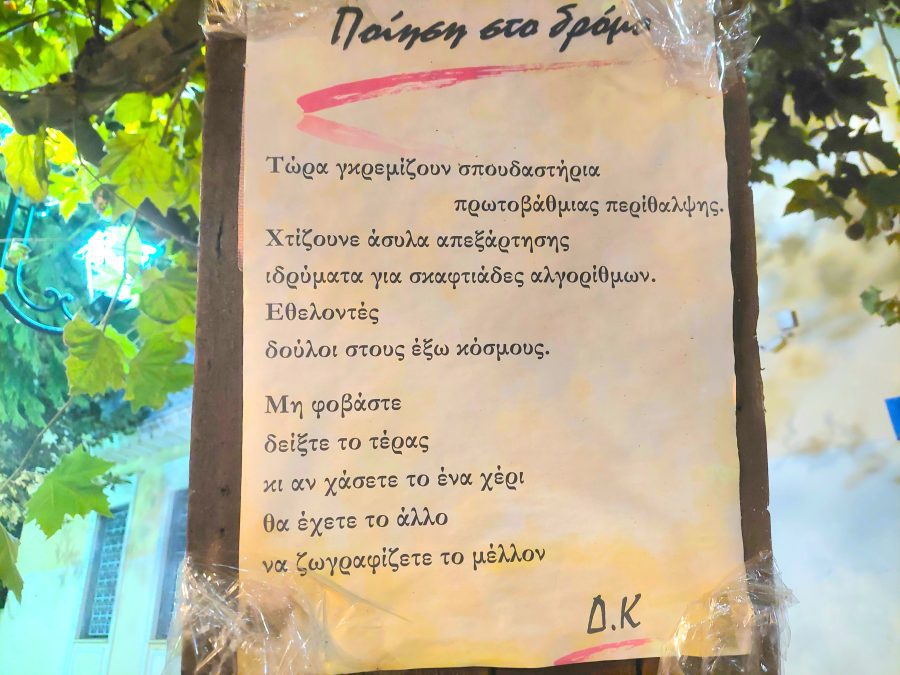 Ποίηση στο δρόμο
Τώρα γκρεμίζουν σπουδαστήρια
πρωτοβάθμιας περίθαλψης.
Χτίζουνε άσυλα απεξάρτησης
ιδρύματα για σκαφτιάδες αλγορίθμων.
Εθελοντές
δούλοι στους έξω κόσμους.
Μη φοβάστε
δείξτε το τέρας
κι αν χάσετε το ένα χέρι
θα έχετε το άλλο
να ζωγραφίζετε το μέλλον
Δ.Κ